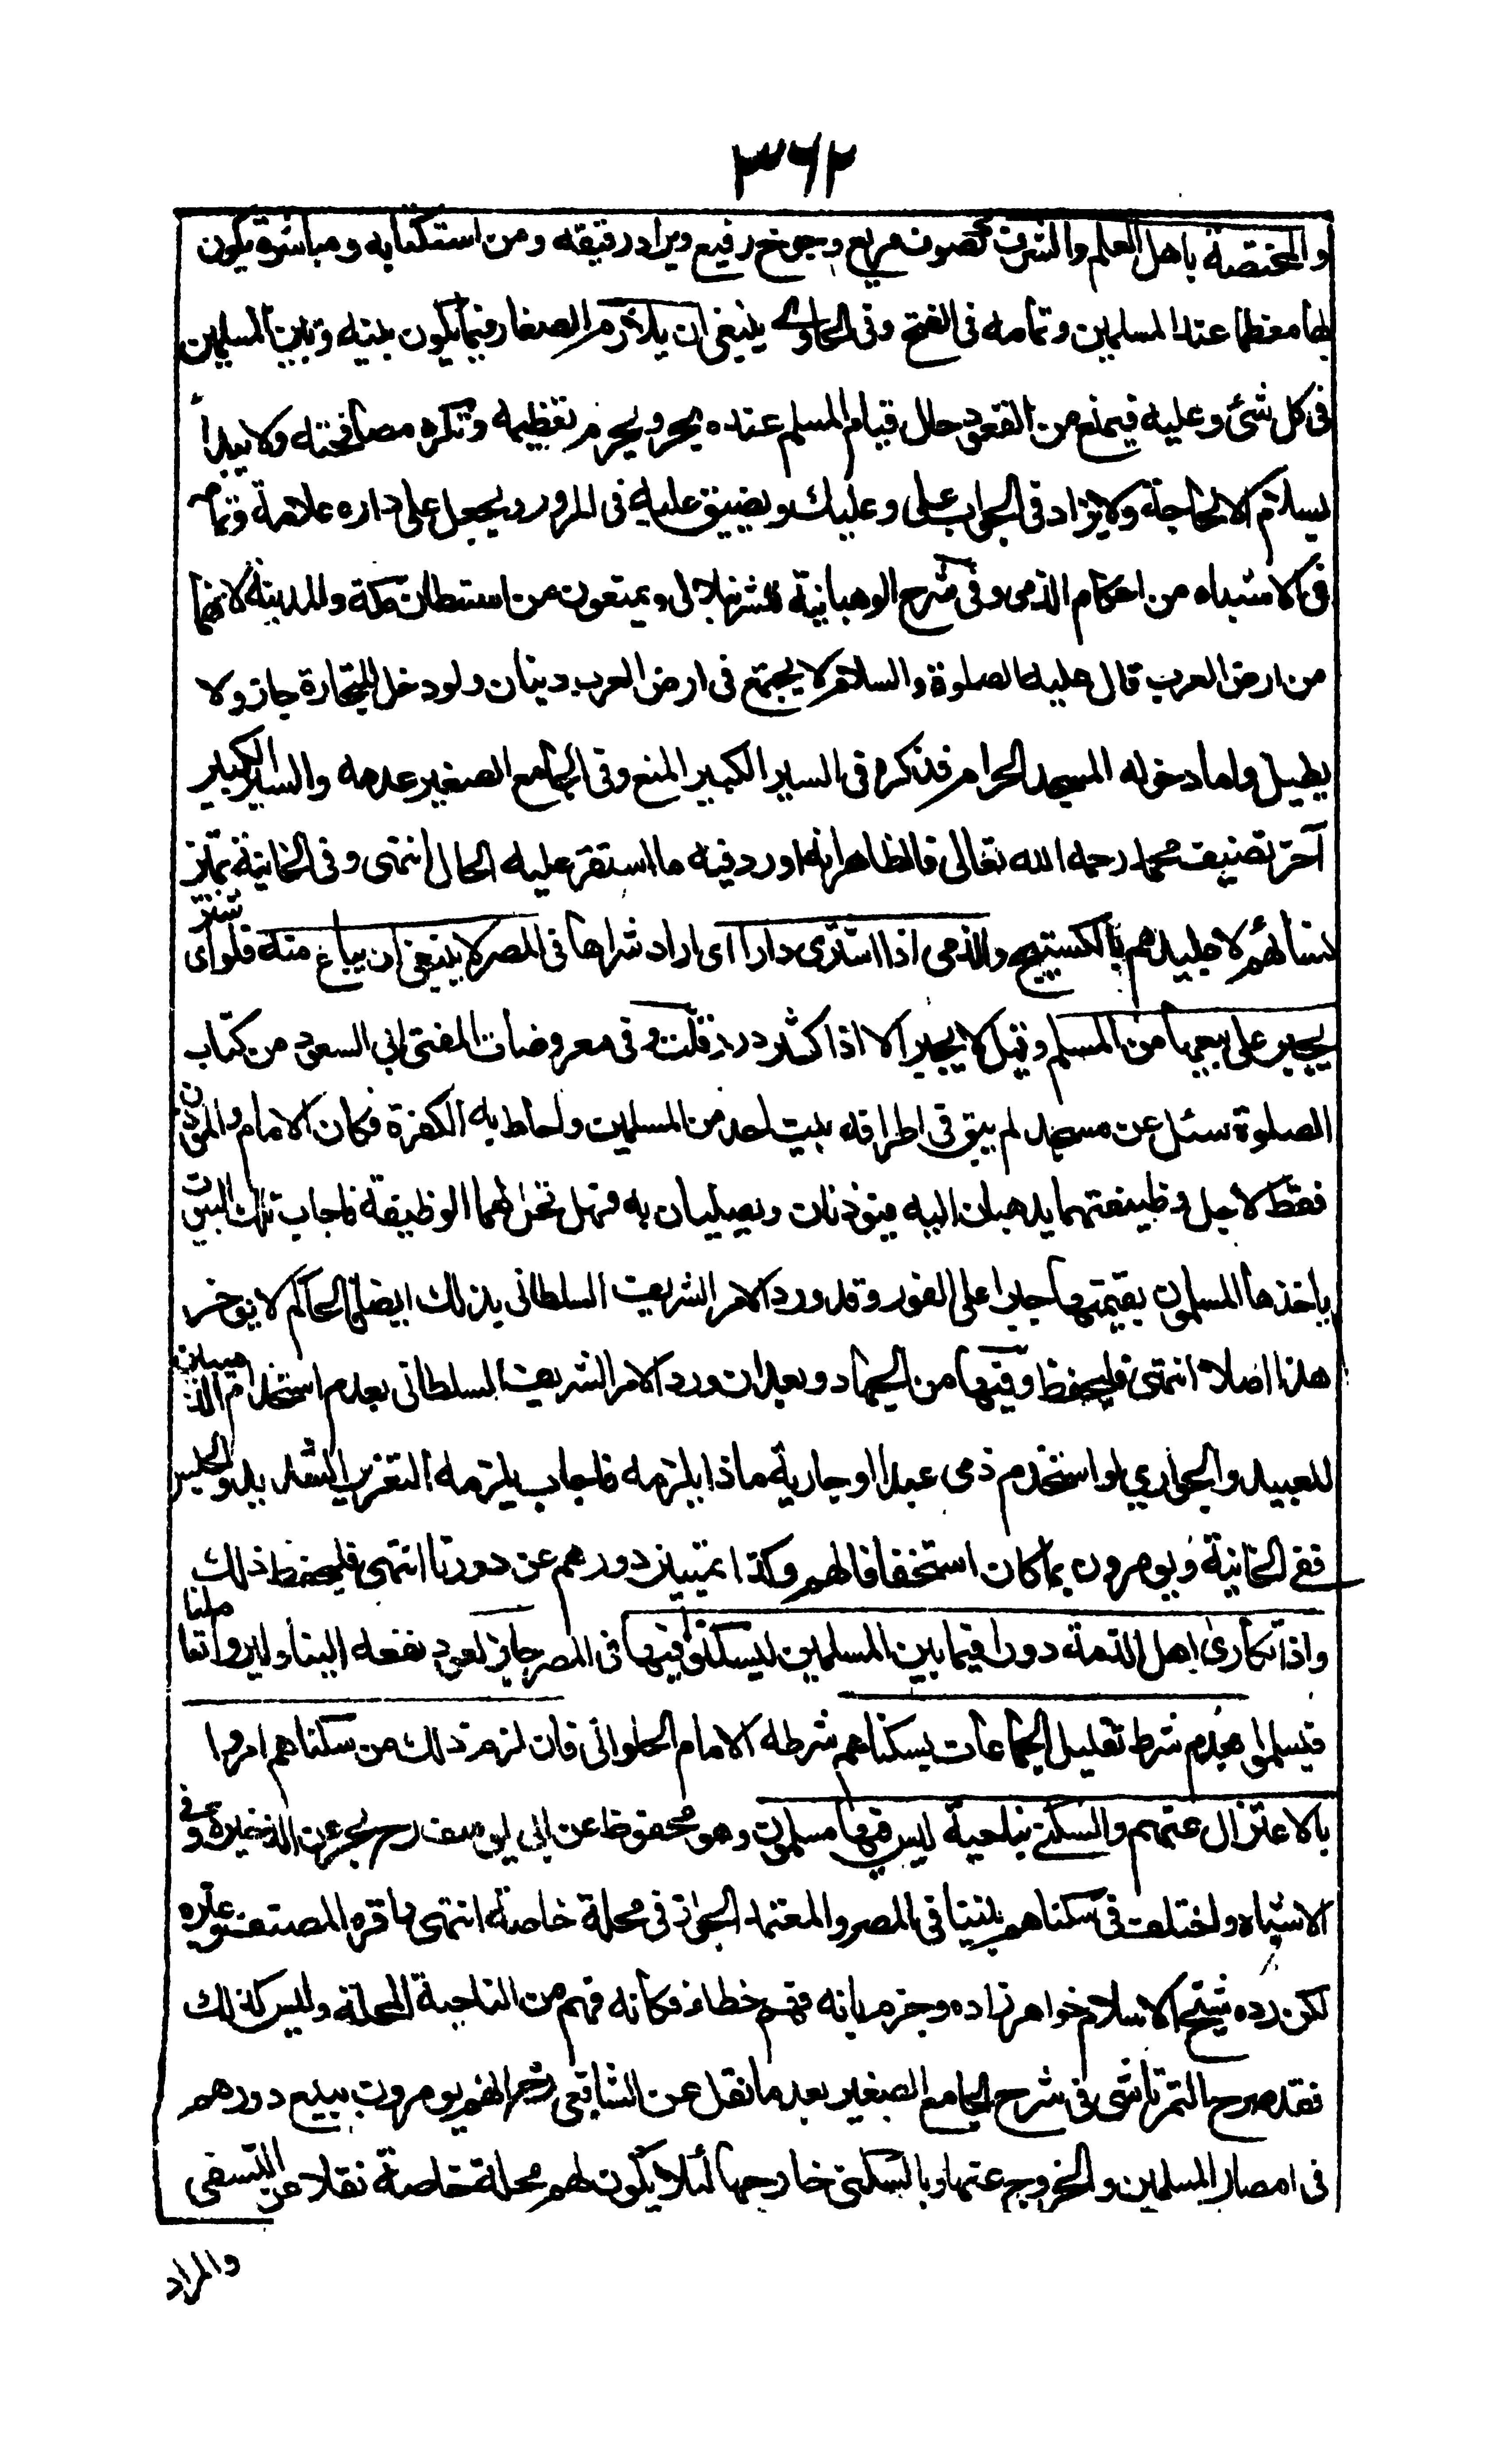 ٣٦٢
والمختصة باهل العلم والشرف كصوف مربع وجوخ رفيع وبراد رقيقه ومن استكتابه ومباشرة يكون
بها معظما عند المسلمين وتمامه فى الفتح وفى الحاوى ينبغى ان يلازم الصغار فيما يكون بينه وبين المسلمين
فى كل شئ وعليه فيمنع من القعود حال قيام المسلم عنده بحر ويحرم تعظيمه وتكره مصافحته ولا يبدا
بسلام الا لحاجة ولا يزاد فى الجواب على وعليك ويضيق عليه فى المرور ويجعل على داره علامة وتمامه
فى الاشباه من احكام الذمى وفى شرح الوهبانية للشرنبلالى ويمنعون من استيطان مكة والمدينة لانهما
من ارض العرب قال عليه الصلوة والسلام لا يجتمع فى ارض العرب دينان ولو دخل للتجارة جاز ولا
يطيل واما دخوله المسجد الحرام فذكر فى السير الكبير المنع وفى الجامع الصغير عدمه والسير الكبير
آخر تصنيف محمد رحمه الله تعالى فالظاهر انه اورد فيه ما استقر عليه الحال انتهى وفى الخانية تمايز
نساؤهم لا عبيدهم بالكستيج والذمى اذا اشترى دارا اى اراد شراها فى المصر لا ينبغى ان يباع منه فلو اشترى
يجبر على بيعها من المسلم وقيل لا يجبر الا اذا كثر درر قلت وفى معروضات المفتى ابى السعود من كتاب
الصلوة سئل عن مسجد لم يبق فى اطرافه بيت احد من المسلمين واحاط به الكفرة فكان الامام والمؤذن
فقط لاجل وظيفتهما يذهبان اليه فيؤذنان ويصليان به فهل تحل لهما الوظيفة فاجاب تلك البيوت
ياخذها المسلمون بقيمتها جبرا على الفور وقد ورد الامر الشريف السلطانى بذلك ايضا فالحاكم لا يؤخر
هذا اصلا انتهى فليحفظ وفيها من الجهاد وبعد ان ورد الامر الشريف السلطانى بعدم استخدام الذميين
للعبيد والجوارى لو استخدم ذمى عبدا او جارية ماذا يلزمه فاجاب يلزمه التعزير الشديد والحبس
ففى الخانية ويؤمرون بما كان استخفافا لهم وكذا تمييز دورهم عن دورنا انتهى فليحفظ ذلك
واذا تكارى اهل الذمة دورا فيما بين المسلمين ليسكنوا فيها فى المصر جاز لعود نفعه الينا وليروا تعاملنا
فيسلموا بعدم شرط تقليل الجماعات بسكناهم شرطه الامام الحلوانى فان لزم ذلك من سكناهم امروا
بالاعتزال عنهم والسكنى بناحية ليس فيها مسلمون وهو محفوظ عن ابى يوسف رح بحر عن الذخيرة وفى
الاشباه واختلف فى سكناهم بيننا فى المصر والمعتمد الجواز فى محلة خاصة انتهى واقره المصنف وغيره
لكن رده شيخ الاسلام خواهر زاده وجزم بانه فهم خطاء فكانه فهم من الناحية المحلة وليس كذلك
فقد صرح التمرتاشى فى شرح الجامع الصغير بعد ما نقل عن الشافعى انهم يومرون ببيع دورهم
فى امصار المسلمين والخروج عنها وبالسكنى خارجها لئلا يكون لهم محلة خاصة نقلا عن النسفى
والمراد